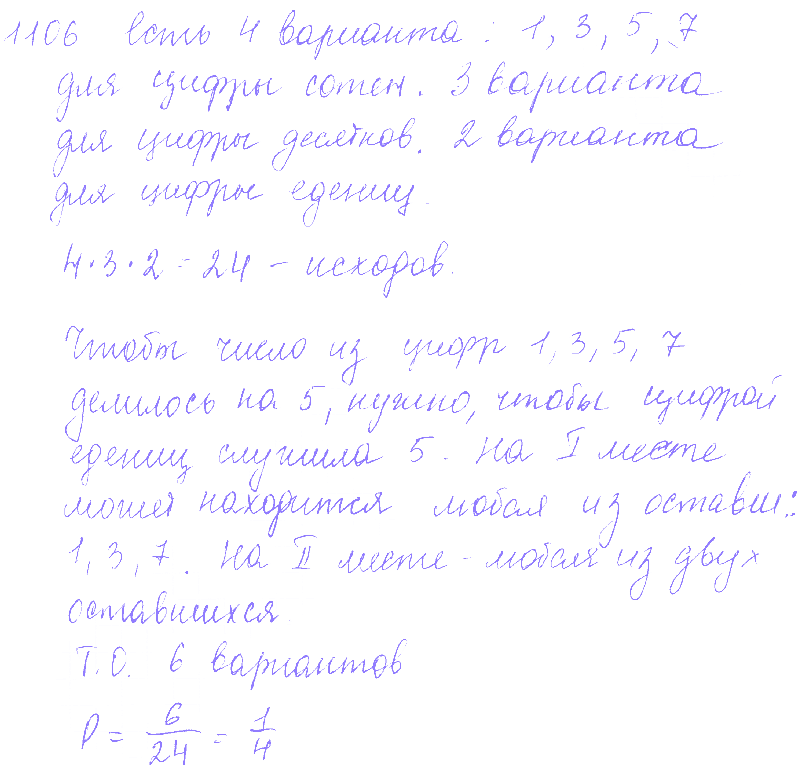 1106 Есть 4 варианта : 1, 3, 5, 7
для цифры сотен. 3 варианта
для цифры десятков. 2 варианта
для цифры едениц.
4·3·2 = 24 – исходов.
Чтобы число из цифр 1, 3, 5, 7
делилось на 5, нужно, чтобы цифрой
едениц служила 5. На I месте
может находится любая из оставш.:
1, 3, 7. На II месте - любая из двух
оставшихся.
Т.О. 6 вариантов
P = 6/24 = 1/4